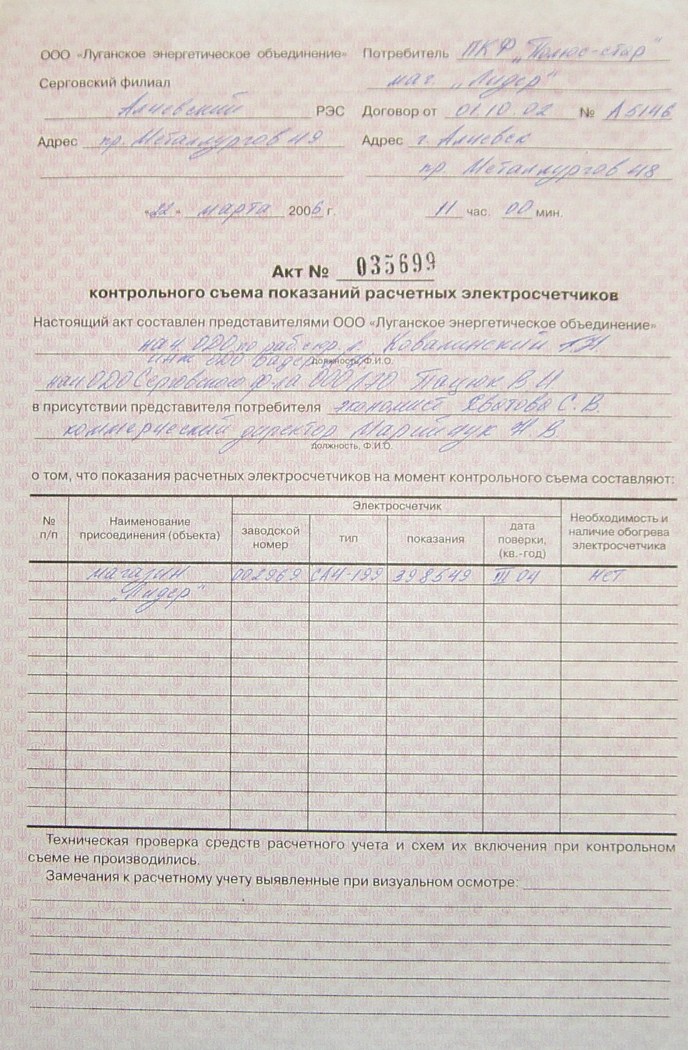 ООО «Луганское энергетическое объединение»
Серговский филиал
Алчевский РЭС
Адрес пр. Металлургов 49
Потребитель ПКФ „Полюс-стар“
маг. „Лидер“
Договор от 01.10.02 № А5146
Адрес г. Алчевск
пр. Металлургов 48
«22» марта 2006 г. 11 час. 00 мин.
Акт № 035699
контрольного съема показаний расчетных электросчетчиков
Настоящий акт составлен представителями ООО «Луганское энергетическое объединение»
нач. ОДО по раб. с юр. л. Ковалинский
инж ОДО
должность, Ф.И.О.
нач ОДО Серговского ф-ла ООО ЛЭО Пацюк В.И
в присутствии представителя потребителя экономист Хвытова С. В.
коммерческий директор Марийчук Н. В.
должность, Ф.И.О.
о том, что показания расчетных электросчетчиков на момент контрольного съема составляют:
№ п/п Наименование присоединения (объекта) Электросчетчик Необходимость и наличие обогрева электросчетчика
заводской номер тип показания дата поверки, (кв.-год)
магазин 002969 СА4-199 398549 III 04 нет
„Лидер“
Техническая проверка средств расчетного учета и схем их включения при контрольном
съеме не производились.
Замечания к расчетному учету выявленные при визуальном осмотре: